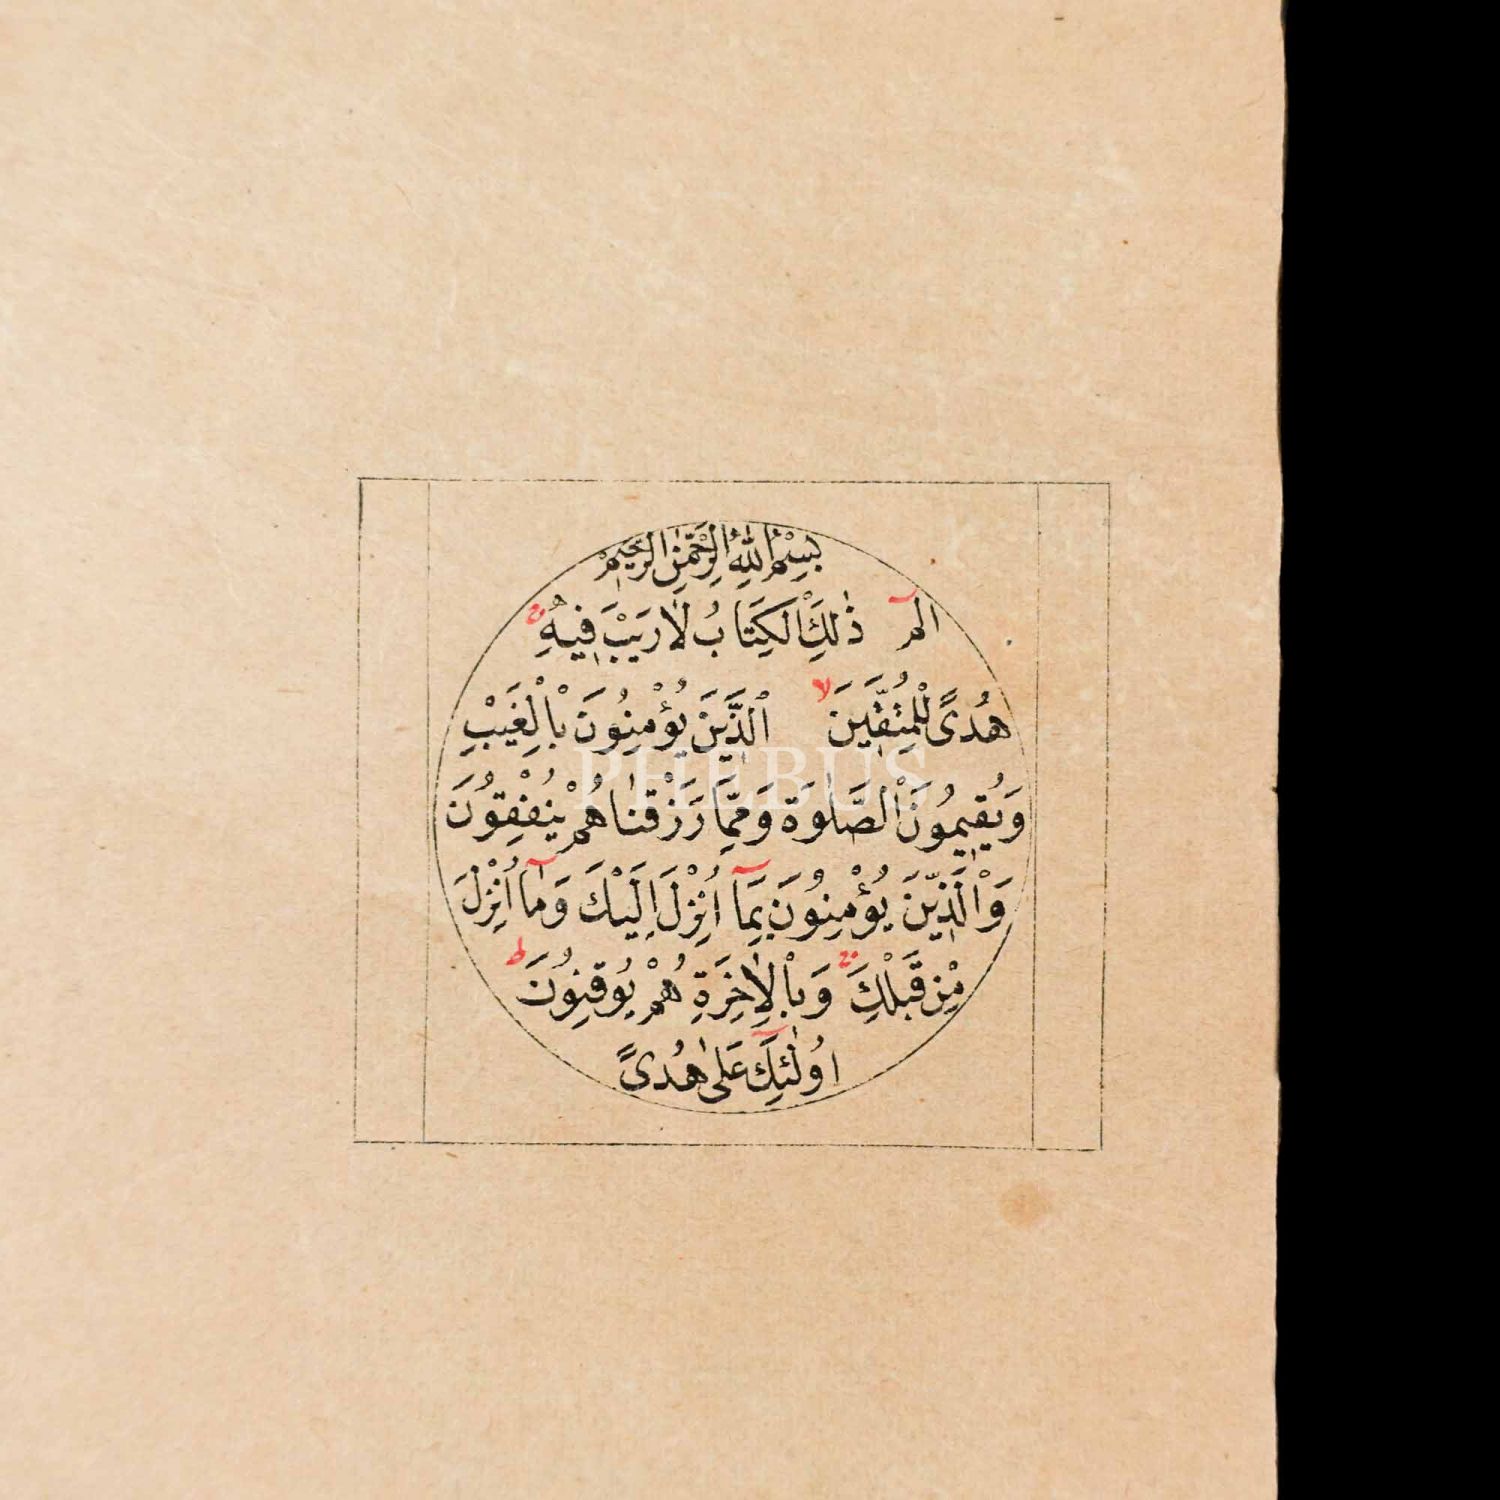 بِسْمِ اللّٰهِ الرَّحْمٰنِ الرَّحٖيمِ
الٓمٓ ذٰلِكَ الْكِتَابُ لَا رَيْبَ فٖيهِ ۛ
هُدًى لِلْمُتَّقٖينَ ۙ اَلَّذٖينَ يُؤْمِنُونَ بِالْغَيْبِ
وَيُقٖيمُونَ الصَّلٰوةَ وَمِمَّا رَزَقْنَاهُمْ يُنْفِقُونَ
وَالَّذٖينَ يُؤْمِنُونَ بِمَٓا اُنْزِلَ اِلَيْكَ وَمَٓا اُنْزِلَ
مِنْ قَبْلِكَ ۛ وَبِالْاٰخِرَةِ هُمْ يُوقِنُونَ ۜ ط
اُولٰٓئِكَ عَلٰى هُدًى
PHEBUS